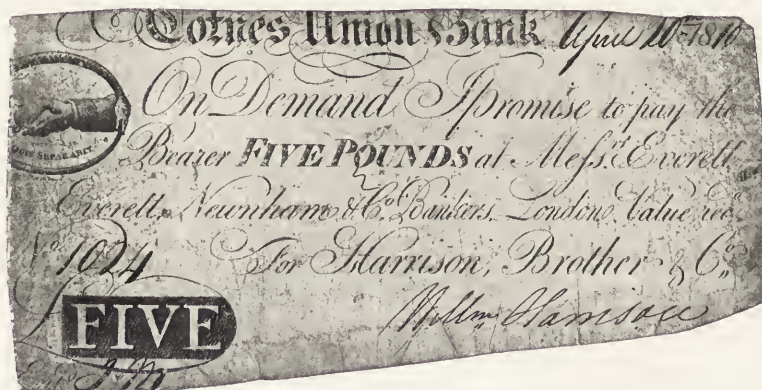 Totnes Union Bank April 20th 1810
On Demand I promise to pay the
QUIS SEPARABIT
Bearer FIVE POUNDS at Messrs. Everett
Everett, Newnham & Co. Bankers, London. Value recd
No. 1024
For Harrison, Brother & Co.
FIVE
Willm Harrison